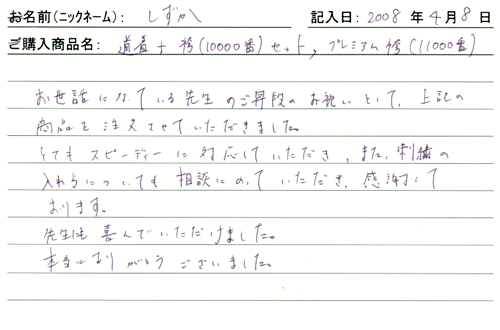 お名前(ニックネーム): しずか 記入日: 2008 年 4 月 8 日
ご購入商品名: 道着+袴(10000番)セット, プレミアム袴(11000番)
お世話になっている先生のご昇段のお祝いとして、上記の
商品を注文させていただきました。
とてもスピーディーに対応していただき、また、刺繍の
入れ方についても相談にのっていただき、感謝して
おります。
先生にも喜んでいただけました。
本当にありがとうございました。